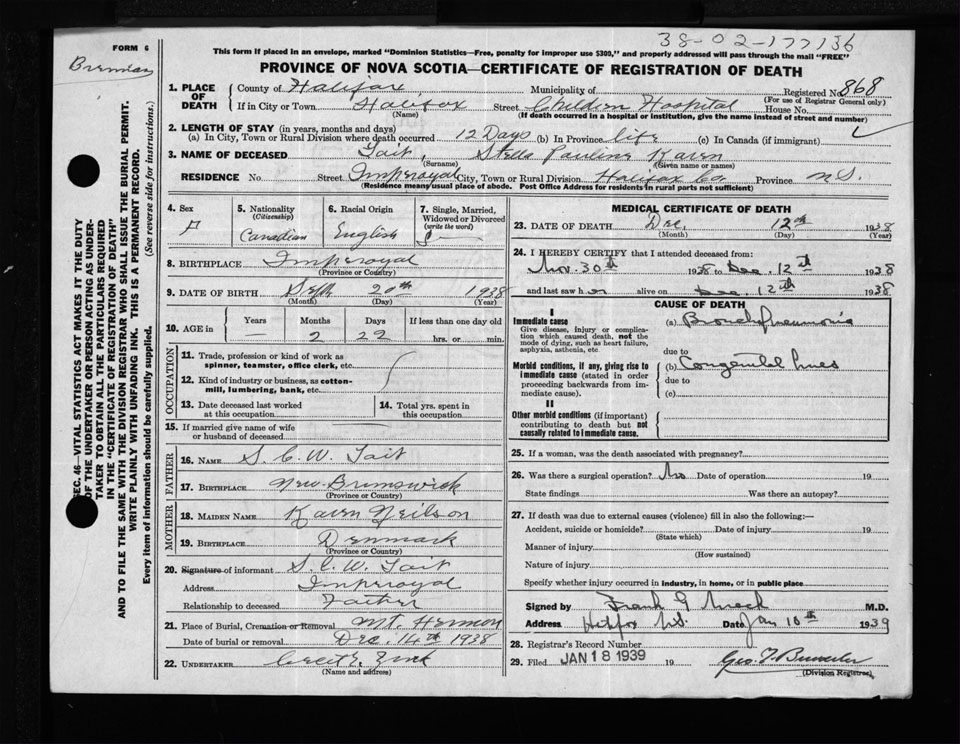 38-02-177136
FORM 6
This form if placed in an envelope, marked "Dominion Statistics—Free, penalty for improper use $300," and properly addressed will pass through the mail "FREE"
PROVINCE OF NOVA SCOTIA—CERTIFICATE OF REGISTRATION OF DEATH
1. PLACE OF DEATH
County of Halifax, Municipality of Registered No. 868
(For use of Registrar General only)
If in City or Town Halifax Street Children Hospital House No.
(Name) (If death occurred in a hospital or institution, give the name instead of street and number)
2. LENGTH OF STAY (in years, months and days)
(a) In City, Town or Rural Division where death occurred 12 Days (b) In Province life (c) In Canada (if immigrant)
3. NAME OF DECEASED Tait, Stella Pauline Karen
(Surname) (Given name or names)
RESIDENCE No. Street Imperoyal City, Town or Rural Division Halifax Co Province N.S.
(Residence means usual place of abode. Post Office Address for residents in rural parts not sufficient)
4. Sex F
5. Nationality (Citizenship) Canadian
6. Racial Origin English
7. Single, Married, Widowed or Divorced (write the word) S
8. BIRTHPLACE Imperoyal
(Province or Country)
9. DATE OF BIRTH Sept 20th 1938
(Month) (Day) (Year)
10. AGE in Years Months 2 Days 22 If less than one day old hrs. or min.
OCCUPATION
11. Trade, profession or kind of work as spinner, teamster, office clerk, etc.
12. Kind of industry or business, as cotton-mill, lumbering, bank, etc.
13. Date deceased last worked at this occupation
14. Total yrs. spent in this occupation
15. If married give name of wife or husband of deceased
FATHER
16. NAME S. C. W. Tait
17. BIRTHPLACE New Brunswick
(Province or Country)
MOTHER
18. MAIDEN NAME Karen Neilson
19. BIRTHPLACE Denmark
(Province or Country)
20. Signature of informant S. C. W. Tait
Address Imperoyal
Relationship to deceased Father
21. Place of Burial, Cremation or Removal Mt. Hermon
Date of burial or removal Dec. 14th 1938
22. UNDERTAKER Cecil E. Zink
(Name and address)
MEDICAL CERTIFICATE OF DEATH
23. DATE OF DEATH Dec. 12th 1938
(Month) (Day) (Year)
24. I HEREBY CERTIFY that I attended deceased from:
Nov. 30th 1938 to Dec. 12th 1938
and last saw her alive on Dec. 12th 1938
CAUSE OF DEATH
I
Immediate cause
Give disease, injury or complication which caused death, not the mode of dying, such as heart failure, asphyxia, asthenia, etc.
(a) Bronchopneumonia
due to
Morbid conditions, if any, giving rise to immediate cause (stated in order proceeding backwards from immediate cause).
(b) Congenital lues
due to
(c)
II
Other morbid conditions (if important) contributing to death but not causally related to immediate cause.
25. If a woman, was the death associated with pregnancy?
26. Was there a surgical operation? No Date of operation 19
State findings Was there an autopsy?
27. If death was due to external causes (violence) fill in also the following:—
Accident, suicide or homicide? Date of injury 19
(State which)
Manner of injury
(How sustained)
Nature of injury
Specify whether injury occurred in industry, in home, or in public place
Signed by Frank G Mack M.D.
Address Halifax N.S. Date Jan 10th 1939
28. Registrar's Record Number
29. Filed JAN 18 1939 19
(Division Registrar)
SEC. 46—VITAL STATISTICS ACT MAKES IT THE DUTY
OF THE UNDERTAKER OR PERSON ACTING AS UNDER-
TAKER TO OBTAIN ALL THE PARTICULARS REQUIRED
IN THE "CERTIFICATE OF REGISTRATION OF DEATH"
AND TO FILE THE SAME WITH THE DIVISION REGISTRAR WHO SHALL ISSUE THE BURIAL PERMIT.
WRITE PLAINLY WITH UNFADING INK. THIS IS A PERMANENT RECORD.
Every item of information should be carefully supplied. (See reverse side for instructions.)